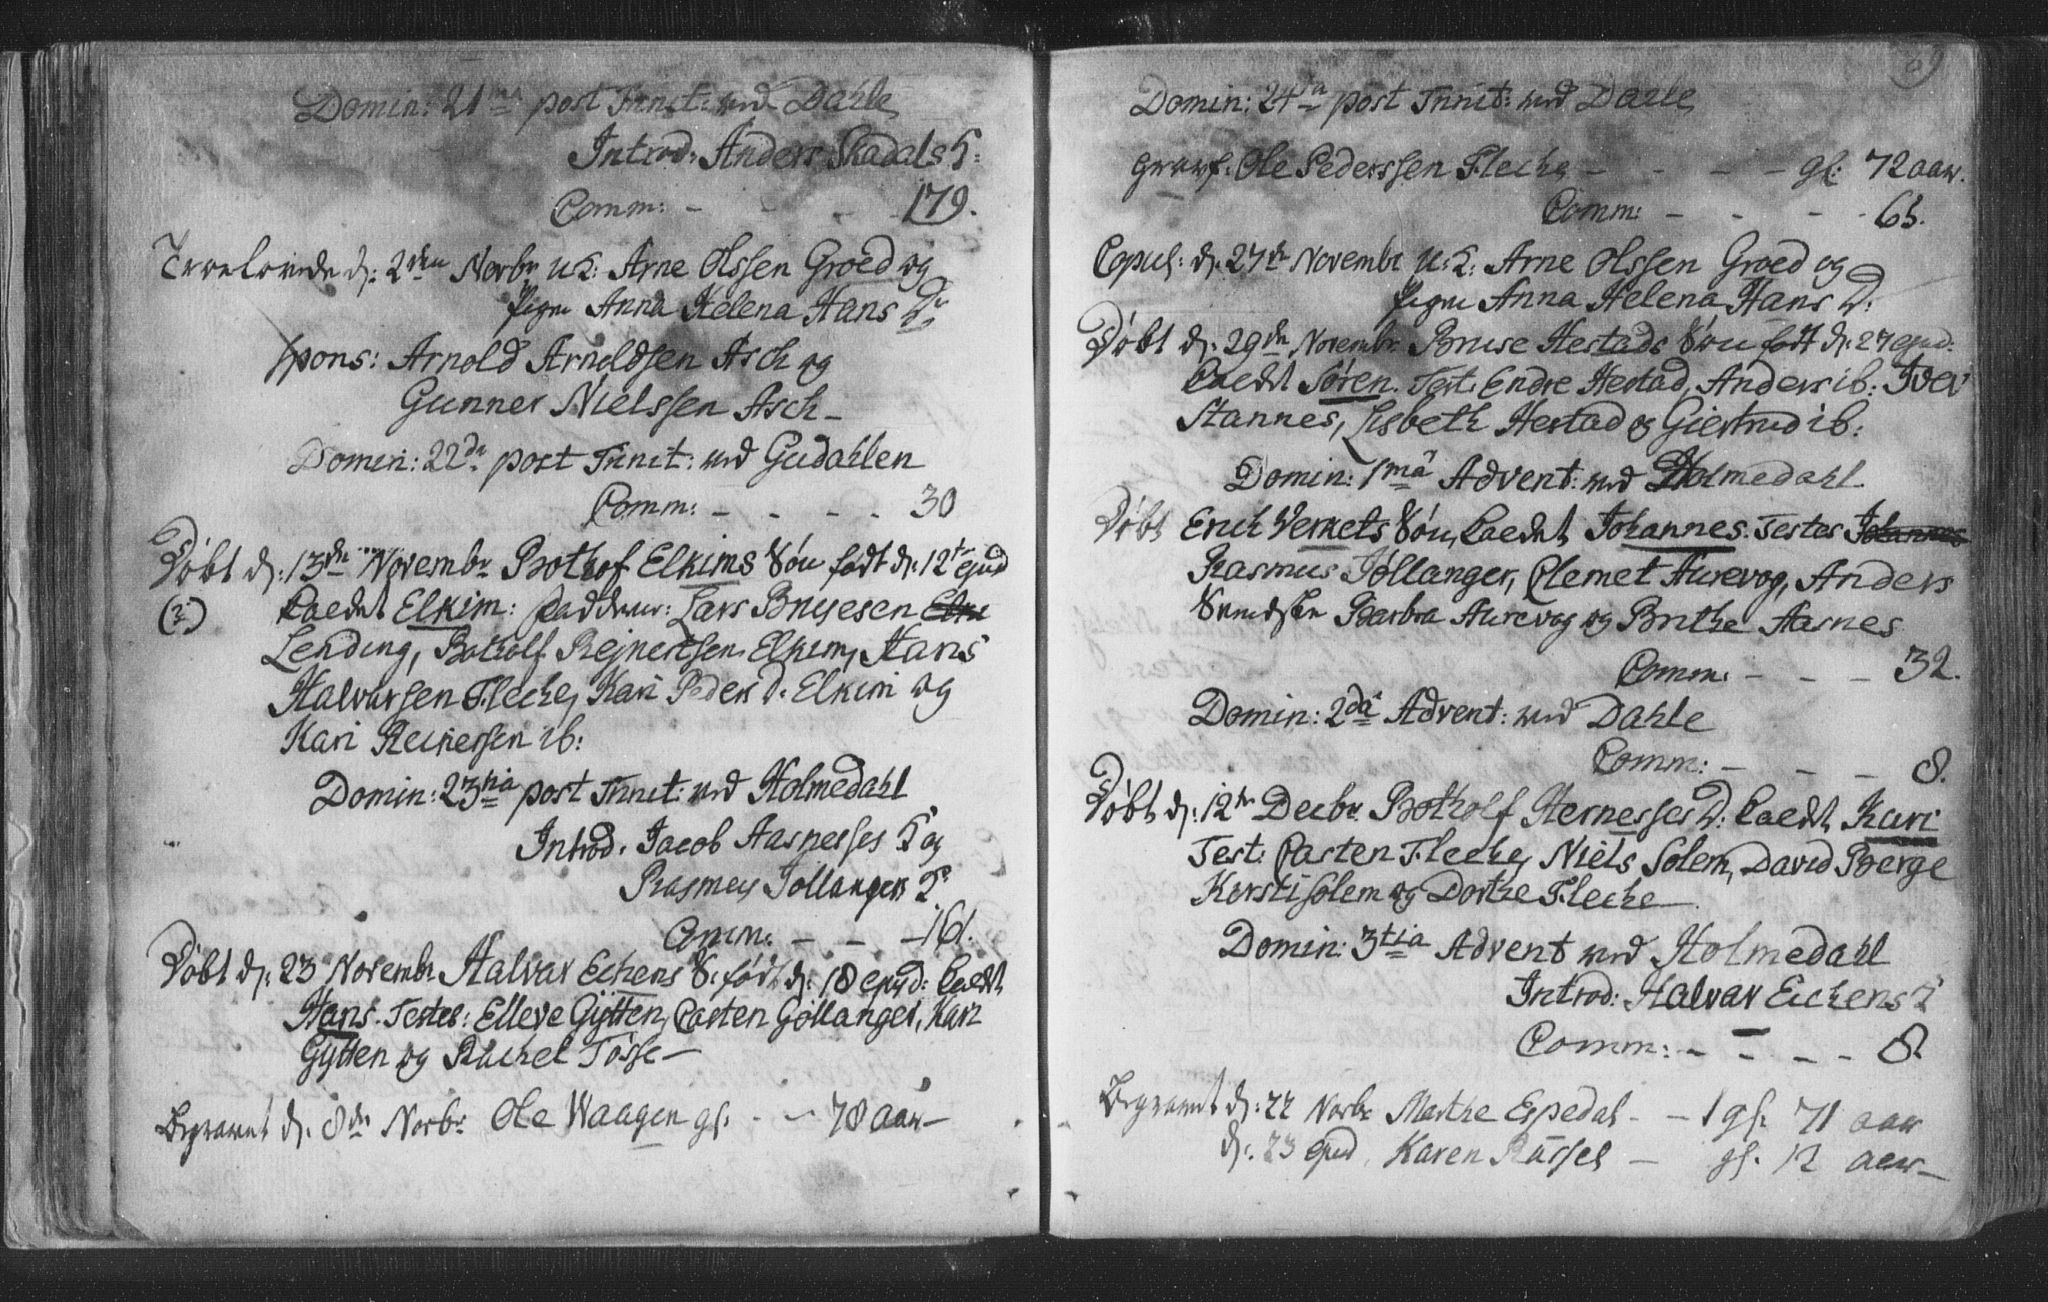 Domin: 21 post Trinit: ved Dahle
Introd: Anders Skadals H:
Comm: - - - 179.
Troelovede d: 2den Novbr u.K: Arne Olssen Groed og
Pigen Anna Helena Hans D:
spons: Arnold Arnoldsen Asch og
Gunner Nielssen Asch -
Domin: 22da post Trinit: ved Gudahlen
Comm: - - - - 30
Døbt d: 13de Novembr Bothof Elkims Søn født d: 12te ejusd
(2) Kaldet Elkim: Faddere: Lars Bruesen
Lending, Botholf Rejnertsen Elkim, Hans
Halvarsen Flecke, Kari Peders d. Elkim og
Kari Reinersen ib:
Domin: 23tia post Trinit: ved Holmedahl
Introd. Jacob Aasnesses H og
Rasmus Jollangers H.
Comm: - - - 161.
Døbt d: 23 Novembr Halvar Echens S: født d: 18 ejusd: kaldet
Hans. Testes: Elleve Gytten, Carten Gollanger, Kari
Gytten og Rachel Tosse -
Begravet d. 8de Novbr. Ole Waagen gl. - - 78 aar -
Domin: 24ta post Trinit: ved Dahle
gravf. Ole Pederssen Flecke - - - - gl: 72 aar.
Comm: - - - - 65.
Copul: d: 27de Novembr u.K: Arne Olssen Groed og
Pigen Anna Helena Hans D:
Døbt d: 29de Novembr Bruse Hestads Søn født d: 27 ejusd:
Kaldet Søren. Test: Endre Hestad, Anders ib: Iver
Stannes, Lisbeth Hestad og Giertrud ib:
Domin: 1ma Advent: ved Holmedahl
Døbt Erich Vernets Søn, kaldet Johannes. Testes Johannes
Rasmus Jollanger, Clemet Aurevog, Anders
Barbra Aurevog og Brithe Aasnes
Comm: - - - 32.
Domin: 2da Advent: ved Dahle
Comm: - - - 8.
Døbt d: 12te Decbr. Botholf Hernesses D: kaldet Kari
Test: Carten Flecke, Niels Solem, David Berge
Kersti Solem og Dorthe Flecke -
Domin: 3tia Advent ved Holmedahl
Introd: Halvar Eichens H
Comm: - - - - 8.
Begravet d: 22 Novbr Marthe Espedal - - gl. 71 aar
d: 23 ejusd. Karen Russel - gl. 12 aar -